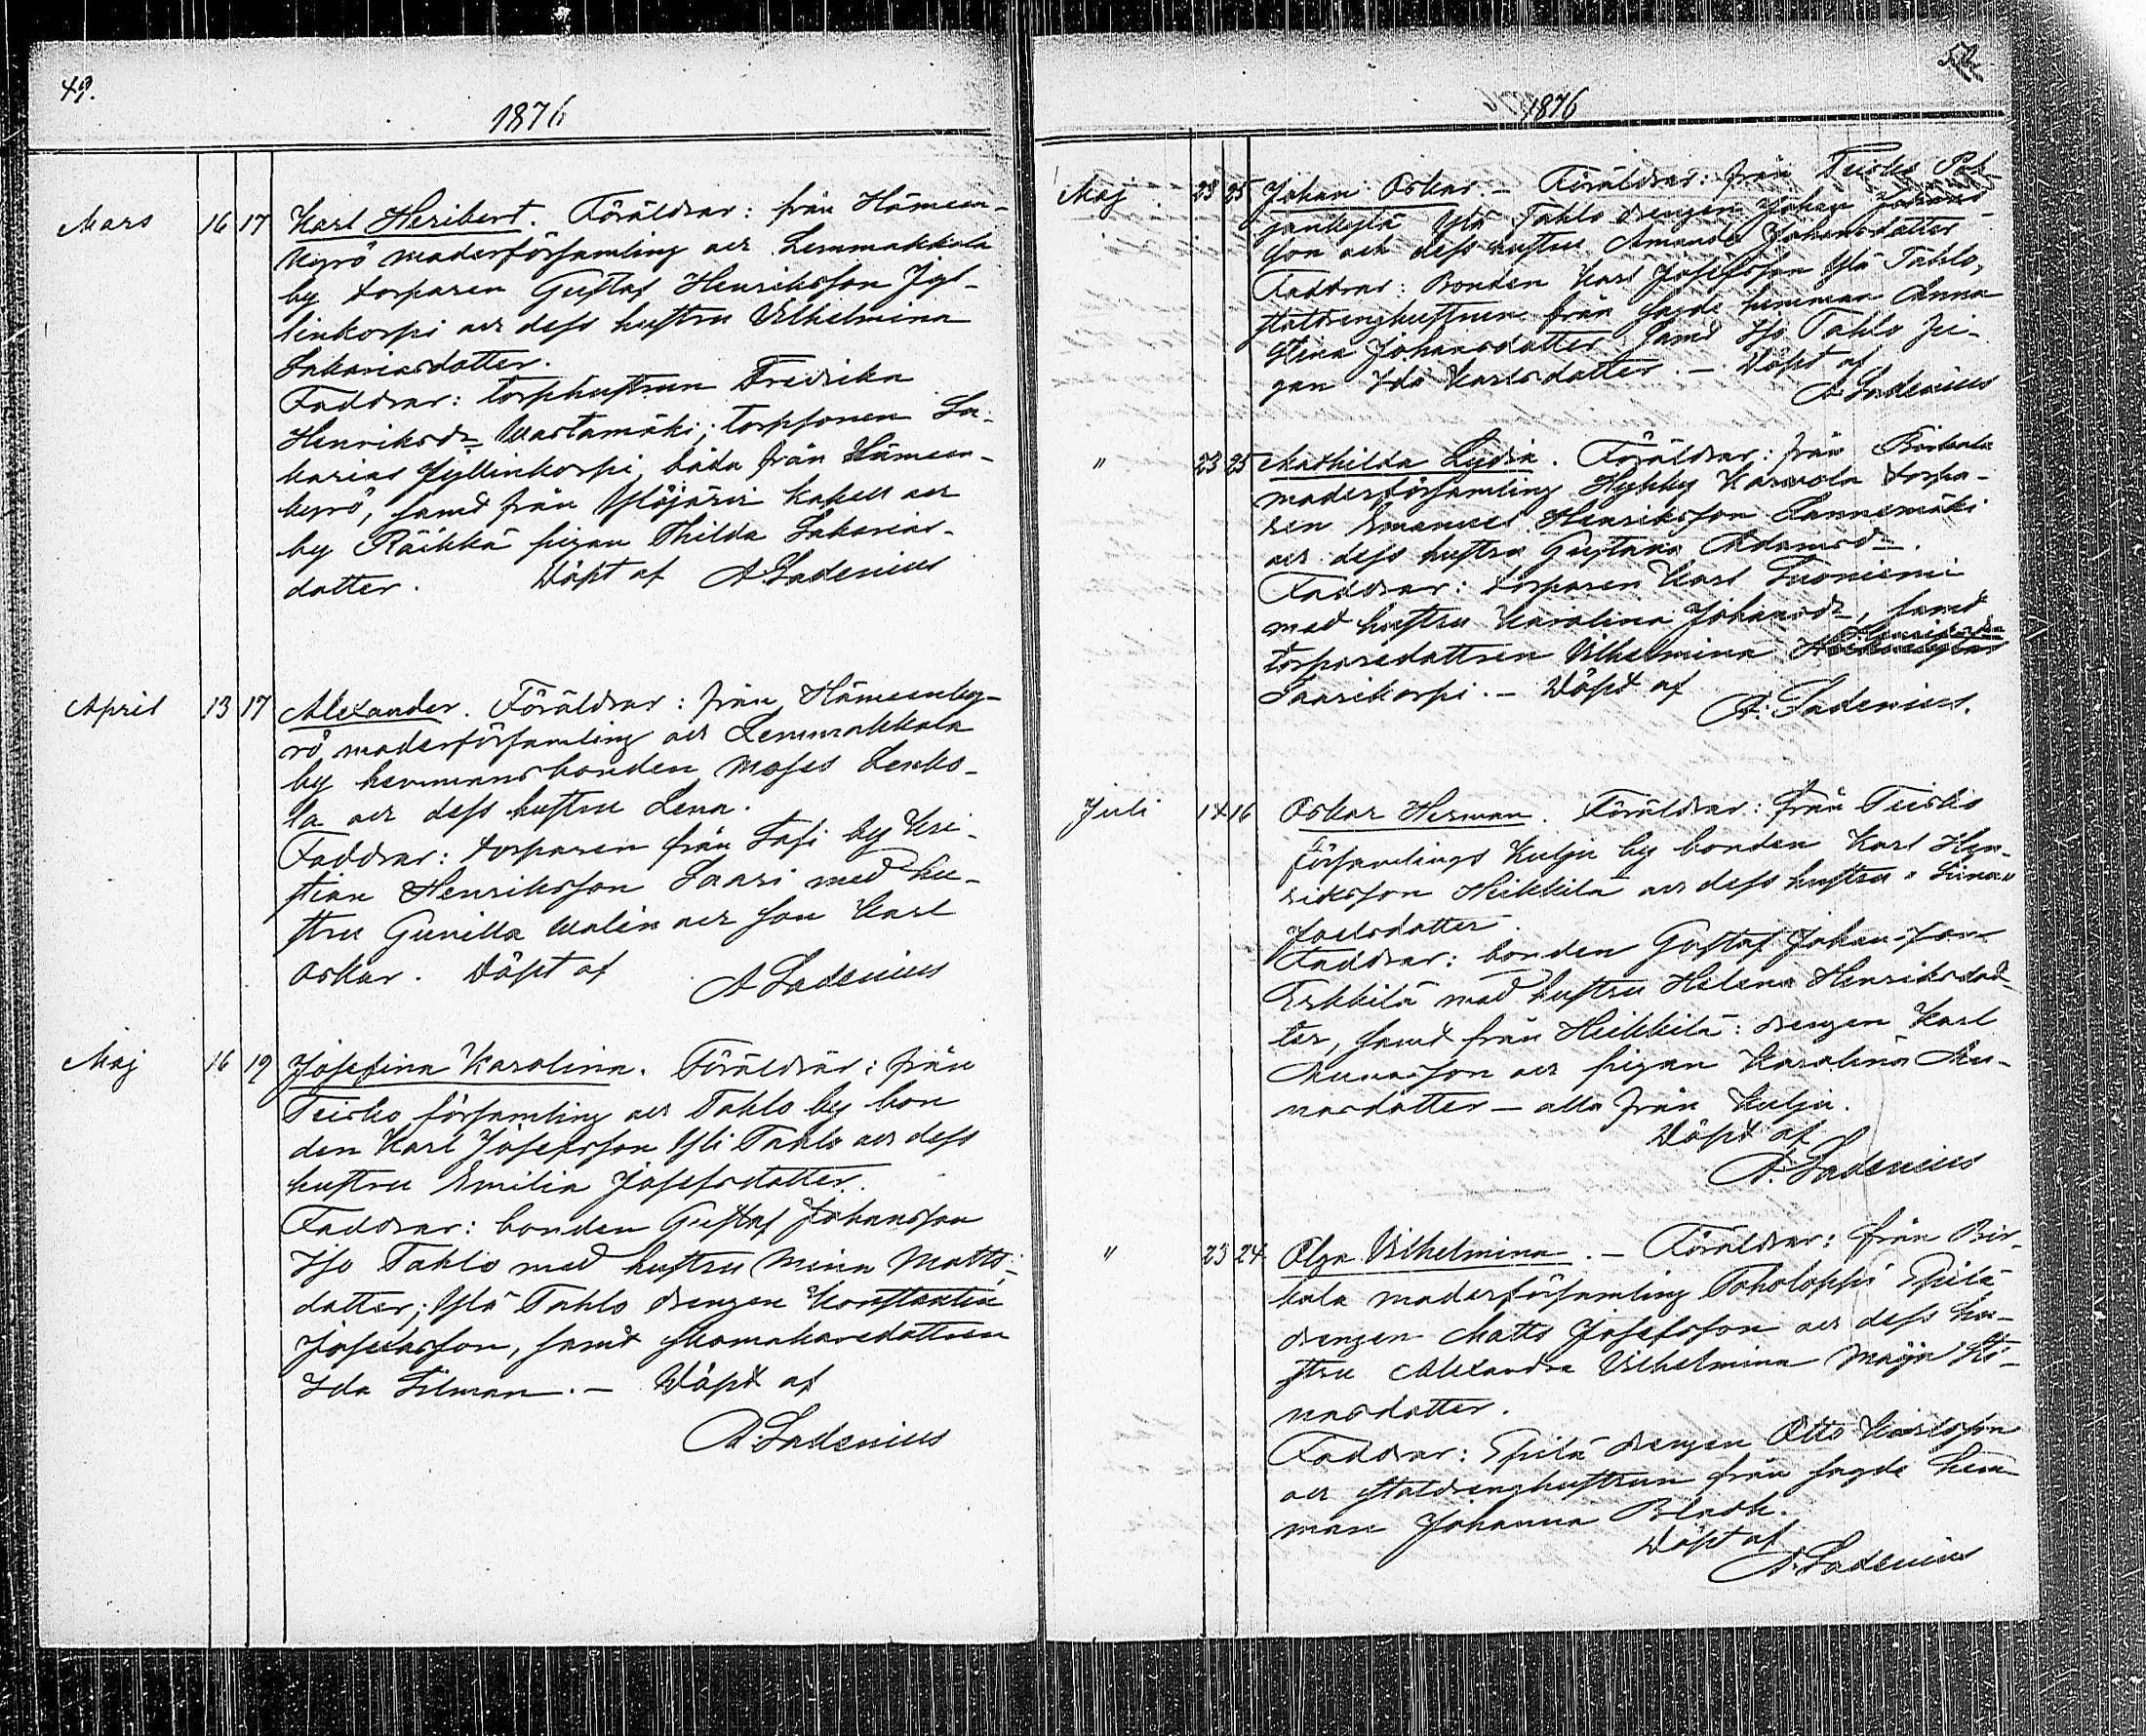 49.
1876
Mars 16 17 Karl Heribert. Föräldrar: från Hämeen-
kyrö moderförsamling och Lemmakkala
by torparen Gustaf Henriksson Jyl-
linkorpi och dess hustru Vilhelmina
Sakariasdotter.
Faddrar: torphustrun Fredrika
Henriksdr Wartamäki; torpsonen Sa-
karias Jyllinkorpi, båda från Hämeen-
kyrö, samt från Ylöjärvi kapell och
by Räikkä pigan Thilda Sakarias-
dotter. Döpt af A Ladenius
April 13 17 Alexander. Föräldrar: från Hämeenky-
rö moderförsamling och Lemmakkala
by hemmansbonden Moses Lenko-
la och dess hustru Lena.
Faddrar: torparen från Sasi by Kri-
stian Henriksson Saari med hu-
stru Gunilla Malin och son Karl
Oskar. Döpt af A Ladenius
Maj 16 19 Josefina Karolina. Föräldrar: från
Teisko församling och Tahlo by bon
den Karl Josefsson Yli Tahlo och dess
hustru Emilia Josefsdotter.
Faddrar: bonden Gustaf Johansson
Iso Tahlo med hustru Mina Matts-
dotter; Ylä Tahlo drengen Konstantin
Josefsson, samt skomakaredottren
Ida Silman. — Döpt af
A. Ladenius
1876
Maj 23 25 Johan Oskar. — Föräldrar: från Teisko Poh-
jankylä Ylä Tahlo drengen Johan Johans-
son och dess hustru Amanda Johansdotter
Faddrar: Bonden Karl Josefsson Ylä Tahlo,
statdrenghustrun från sagde hemman Anna
Stina Johansdotter samt Iso Tahlo pi-
gan Ida Karlsdotter. — Döpt af
A Ladenius
" 23 25 Mathilda Lydia. Föräldrar: från Birkala
moderförsamling Hyhky torpa-
ren Emanuel Henriksson Lannemäki
och dess hustru Gustava Adamsdr.
Faddrar: torparen Karl Tuoniemi
med hustru Karolina Johansdr, samt
torparedottren Vilhelmina
Saarikorpi. — Döpt af
A. Ladenius.
Juli 14 16 Oskar Herman. Föräldrar: från Teisko
församlings Kulju by bonden Karl Hen-
riksson Heikkilä och dess hustru
Joelsdotter.
Faddrar: bonden Gustaf Johansson
Erkkilä med hustru Helena Henriksdot-
ter, samt från Heikkilä: drengen Karl
och pigan Karolina
— alla från Kulju.
Döpt af
A. Ladenius
" 23 24 Olga Vilhelmina. — Föräldrar: från Bir-
kala moderförsamling Spilä
drengen Matts Josefsson och dess hu-
stru Alexandra Vilhelmina Maija Sti-
nasdotter.
Faddrar: Spilä drengen Otto Karlsson
och statdrenghustrun från sagde hem
man Johanna Bladh.
Döpt af
A. Ladenius